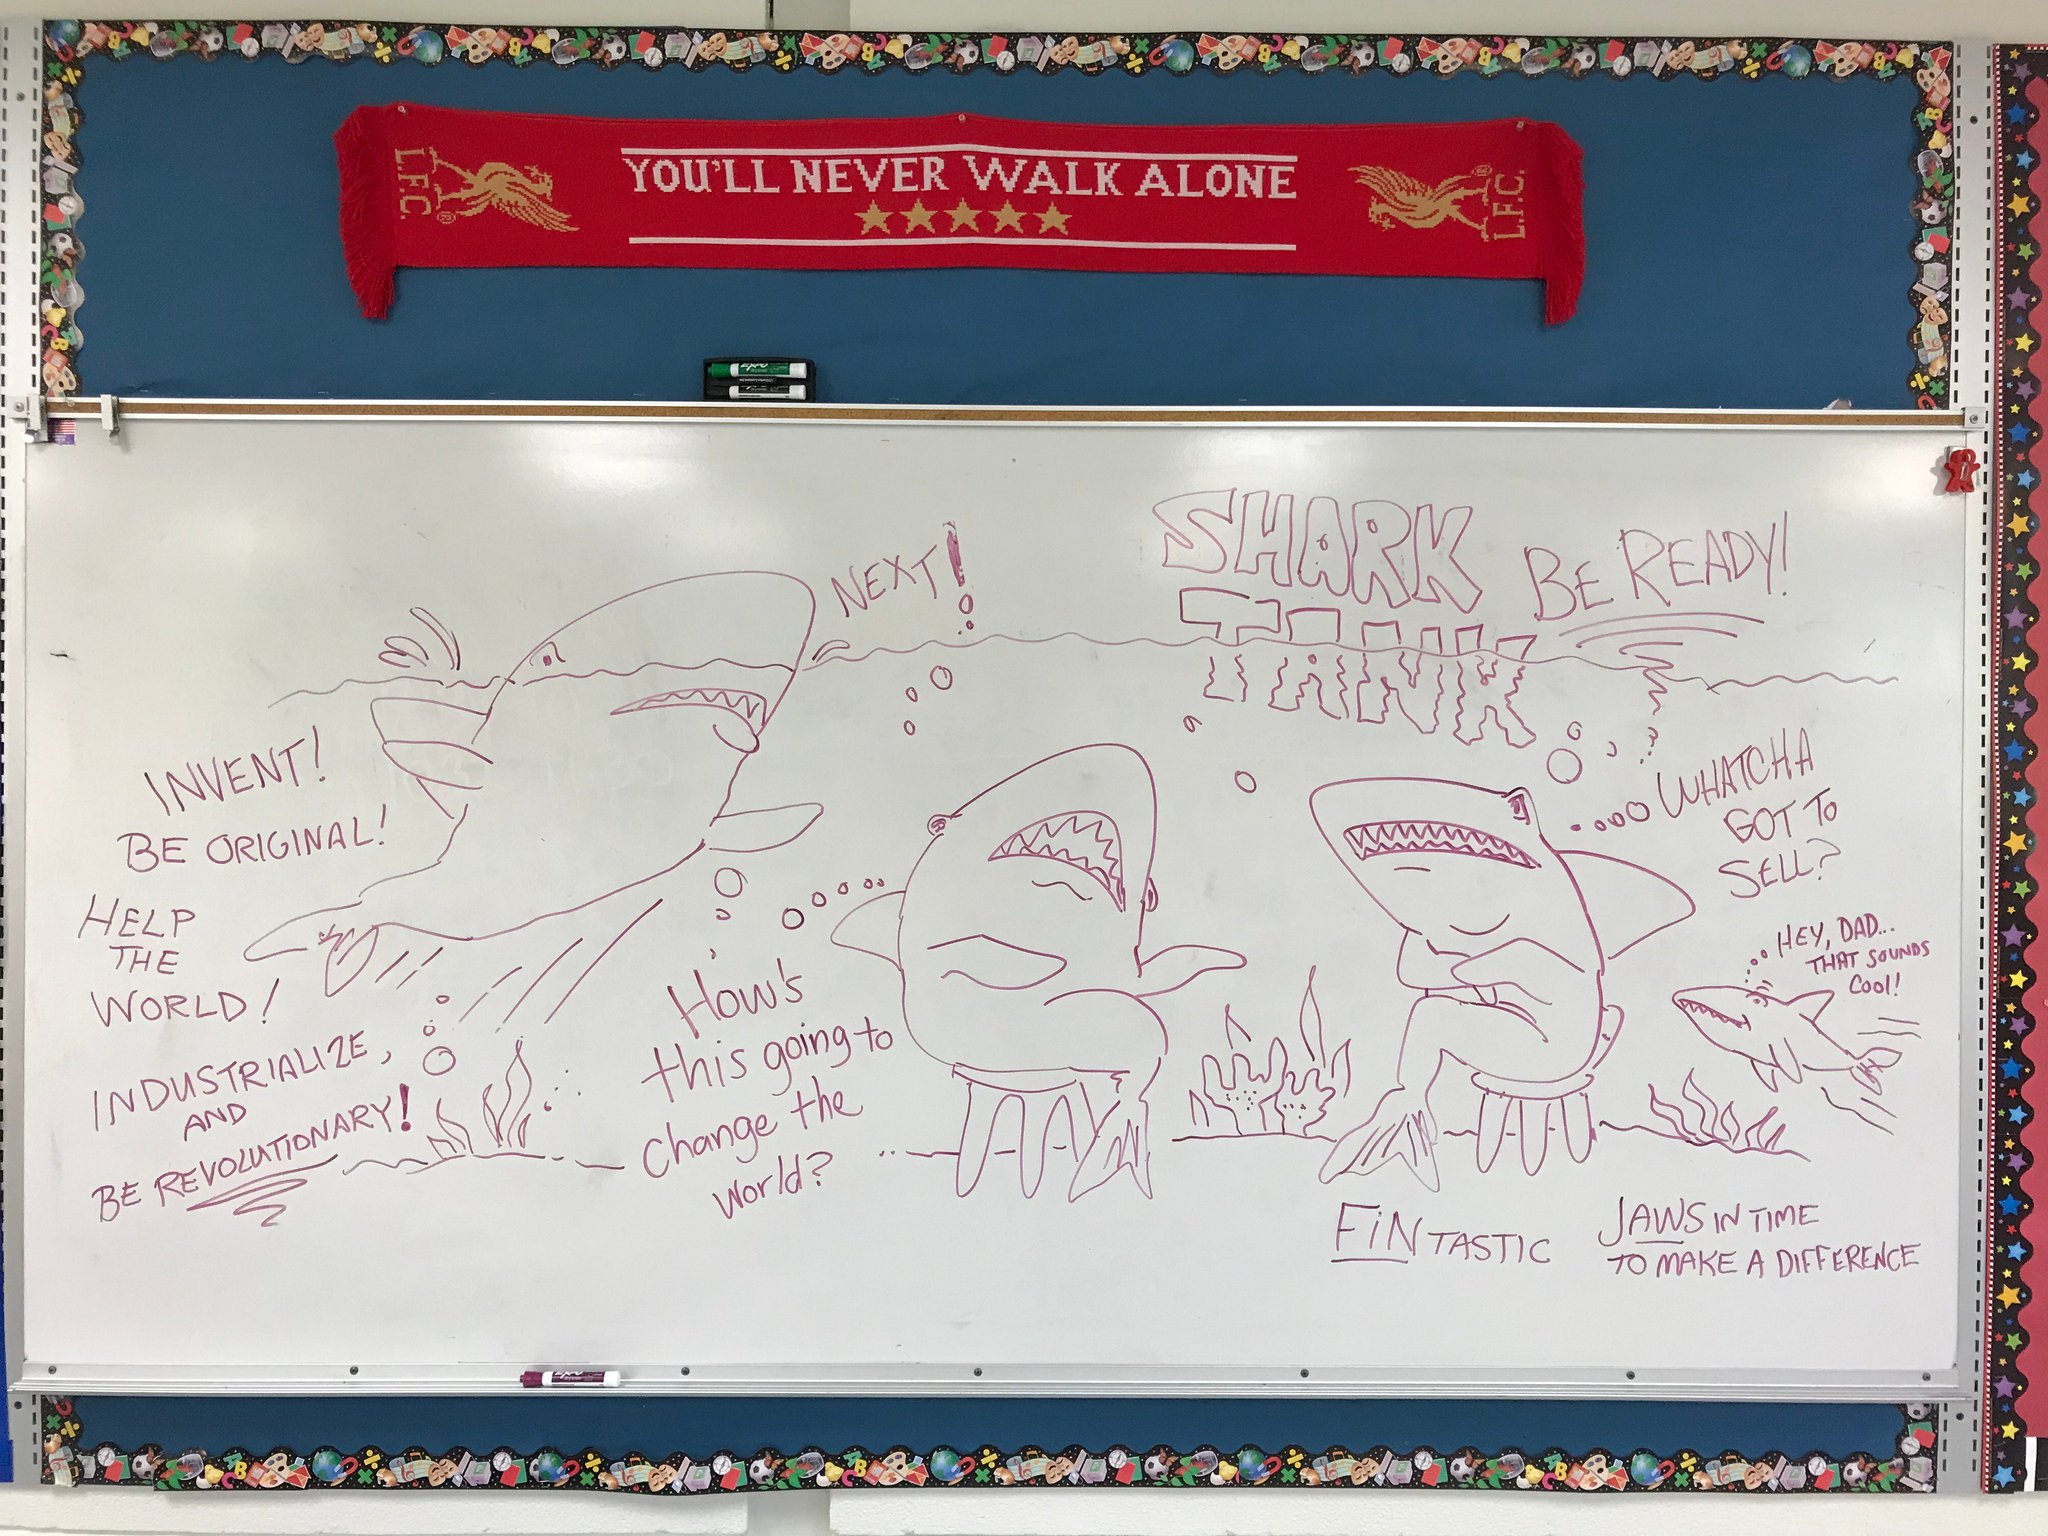 YOU'LL NEVER WALK ALONE
L.F.C.
L.F.C.
EXPO
SHARK
TANK
BE READY!
NEXT!
INVENT!
BE ORIGINAL!
HELP
THE
WORLD!
INDUSTRIALIZE,
AND
BE REVOLUTIONARY!
How's
this going to
change the
world?
WHATCHA
GOT TO
SELL?
HEY, DAD...
THAT SOUNDS
COOL!
FiNTASTIC
JAWS IN TIME
TO MAKE A DIFFERENCE
EXPO